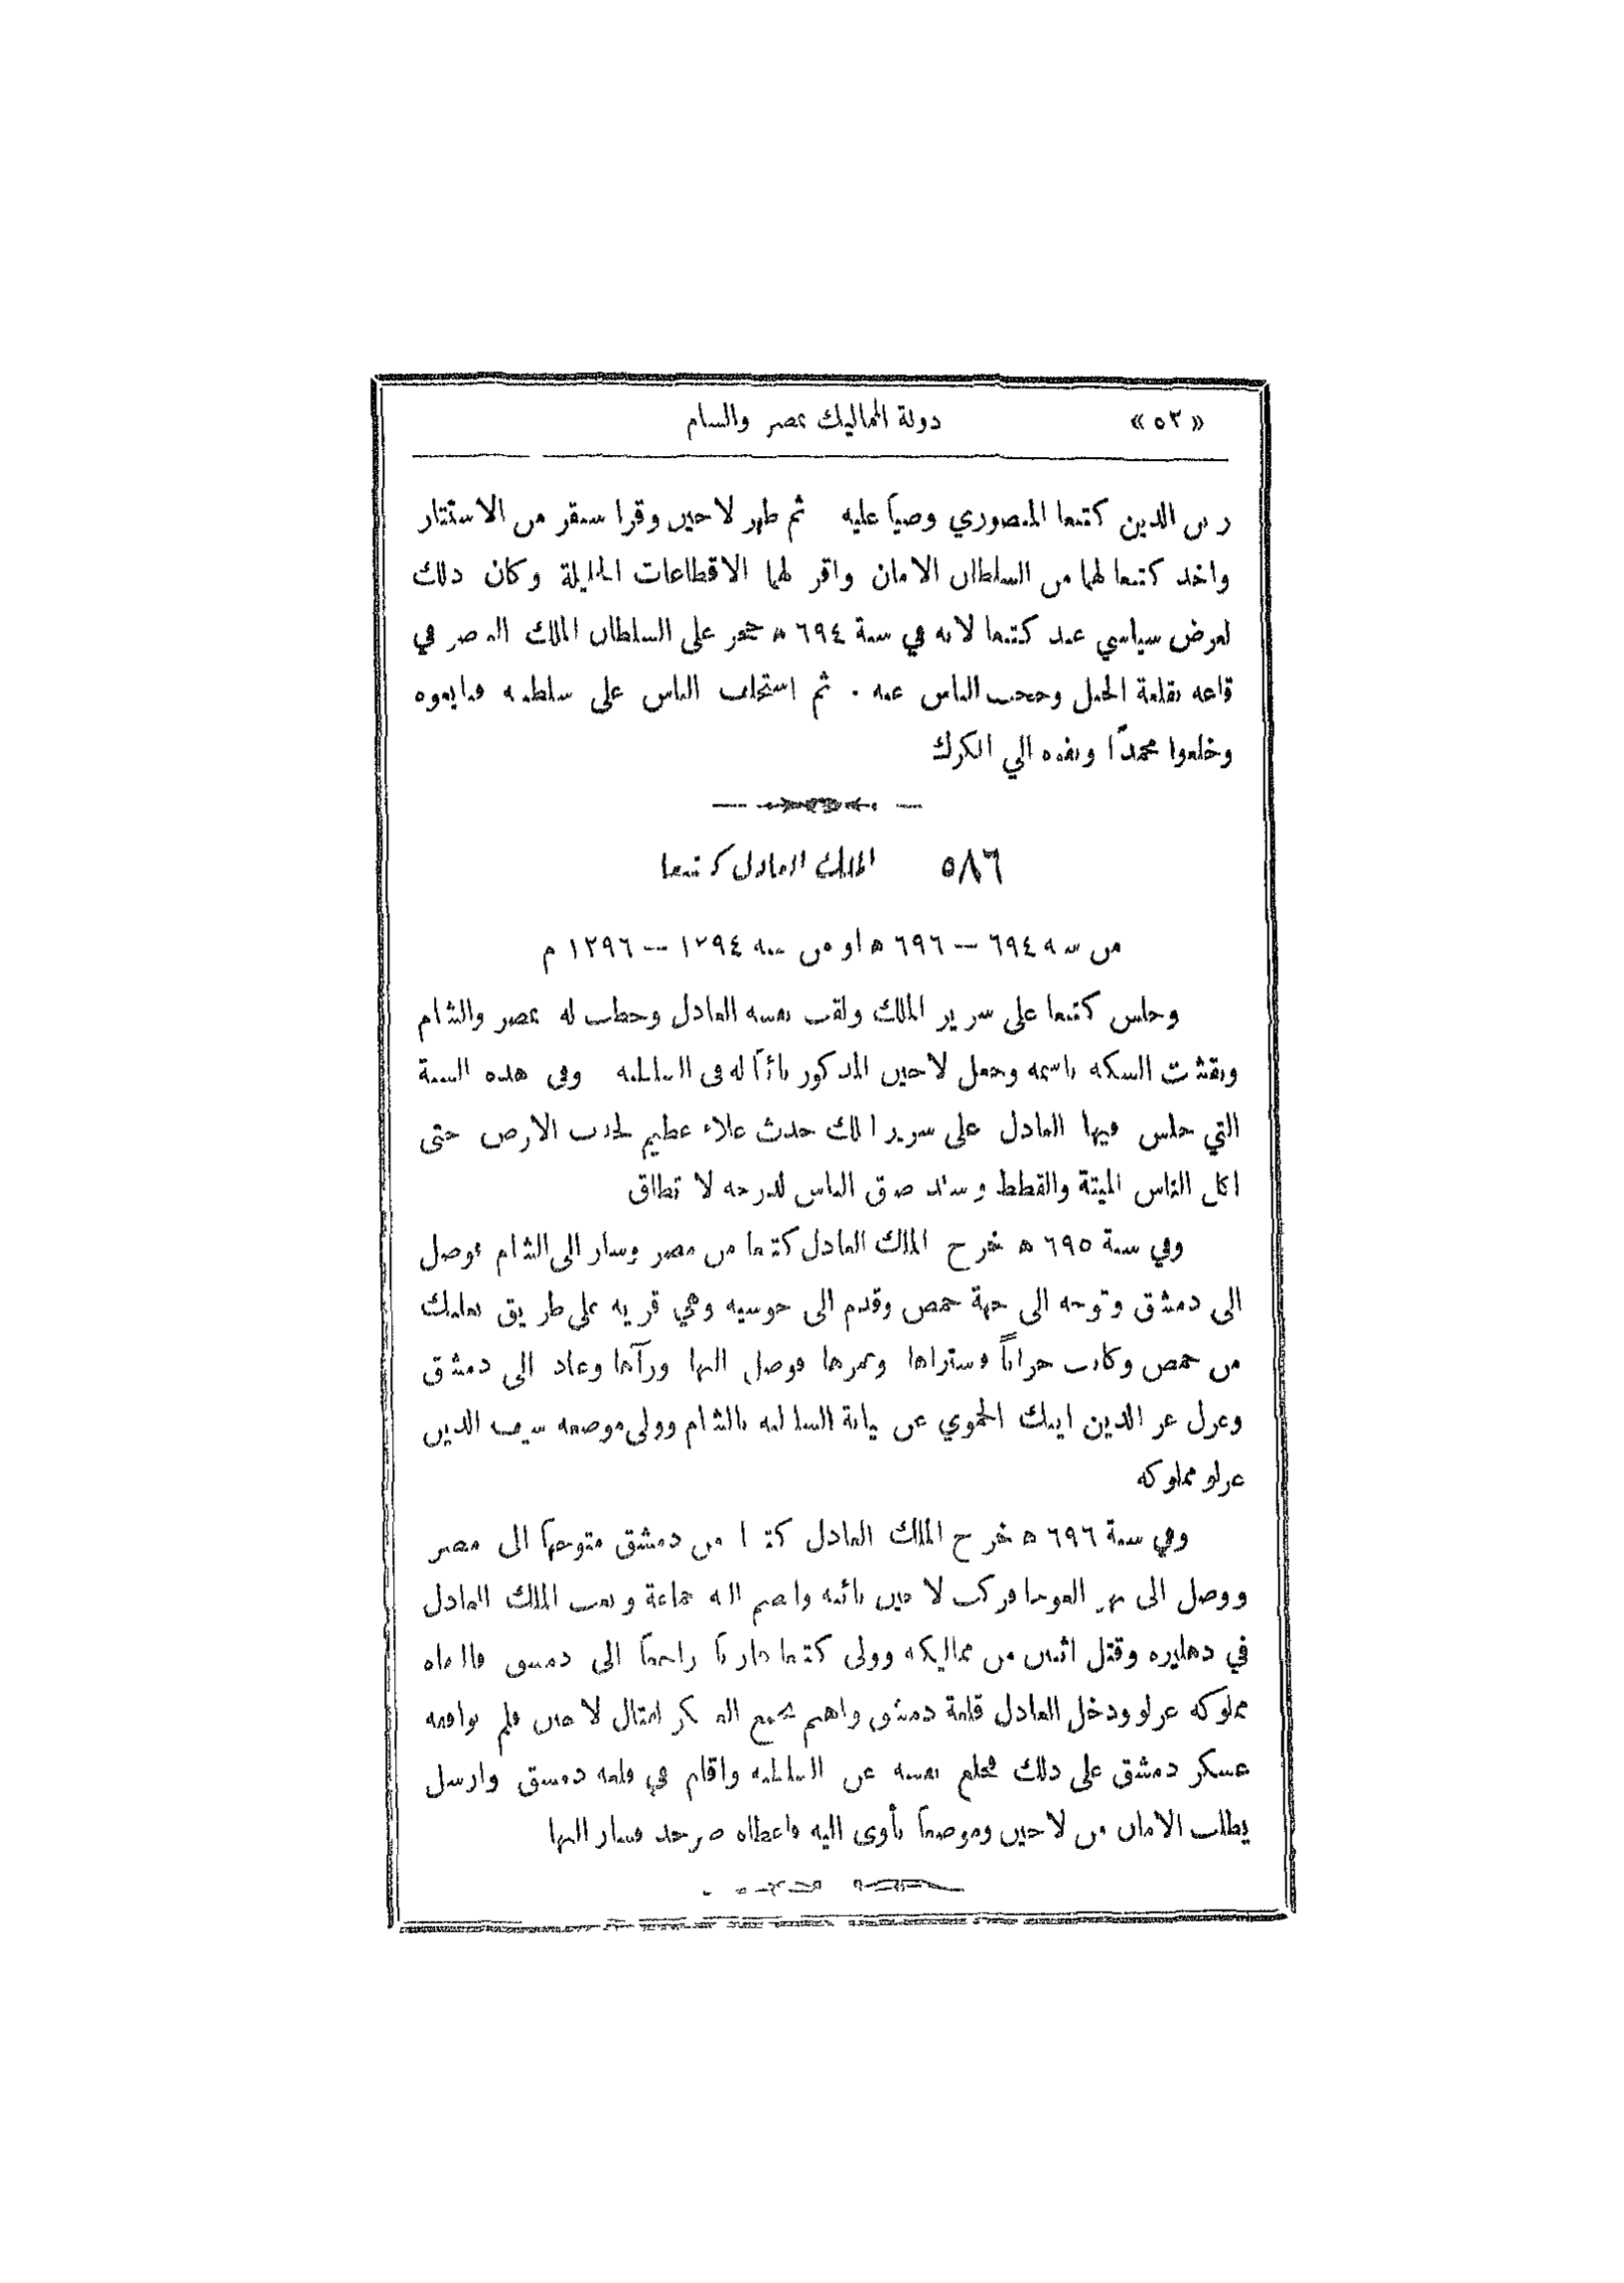 «٥٣» دولة المماليك بمصر والشام
زين الدين كتبغا المنصوري وصياً عليه ثم ظهر لاجين وقرا سنقر من الاستتار
واخذ كتبغا لهما من السلطان الامان واقر لهما الاقطاعات الجليلة وكان ذلك
لغرض سياسي عند كتبغا لانه في سنة ٦٩٤ ه حجر على السلطان الملك الناصر في
قاعه بقلعة الجبل وحجب الناس عنه . ثم استحلف الناس على سلطنته فبايعوه
وخلعوا محمداً ونفوه الي الكرك
٥٨٦ الملك العادل كتبغا
من سنة ٦٩٤ — ٦٩٦ ه او من سنه ١٢٩٤ — ١٢٩٦ م
وجلس كتبغا على سرير الملك ولقب نفسه العادل وخطب له بمصر والشام
ونقشت السكه باسمه وجعل لاجين المذكور نائباً له في السلطنه وفي هذه السنة
التي جلس فيها العادل على سرير الملك حدث غلاء عظيم لجدب الارض حتى
اكل الناس الميتة والقطط الناس لدرجه لا تطاق
وفي سنة ٦٩٥ ه خرج الملك العادل كتبغا من مصر وسار الى الشام فوصل
الى دمشق وتوجه الى جهة حمص وقدم الى جوسيه وهي قريه على طريق بعلبك
من حمص وكانت خراباً فاشتراها وعمرها فوصل اليها ورآها وعاد الى دمشق
وعزل عز الدين ايبك الحموي عن نيابة السلطنه بالشام وولى موضعه سيف الدين
غرلو مملوكه
وفي سنة ٦٩٦ ه خرج الملك العادل كتبغا من دمشق متوجهاً الى مصر
ووصل الى نهر العوجا فركب لاجين نائبه وانضم اليه جماعة وبغت الملك العادل
في دهليزه وقتل اثنين من مماليكه وولى كتبغا هارباً راجعاً الى دمشق فالتقاه
مملوكه غرلو ودخل العادل قلعة دمشق واهتم بجمع العسكر لقتال لاجين فلم يوافقه
عسكر دمشق على ذلك فخلع نفسه عن السلطنه واقام في قلعه دمشق وارسل
يطلب الامان من لاجين وموضعاً يأوى اليه فاعطاه صرخد فسار اليها